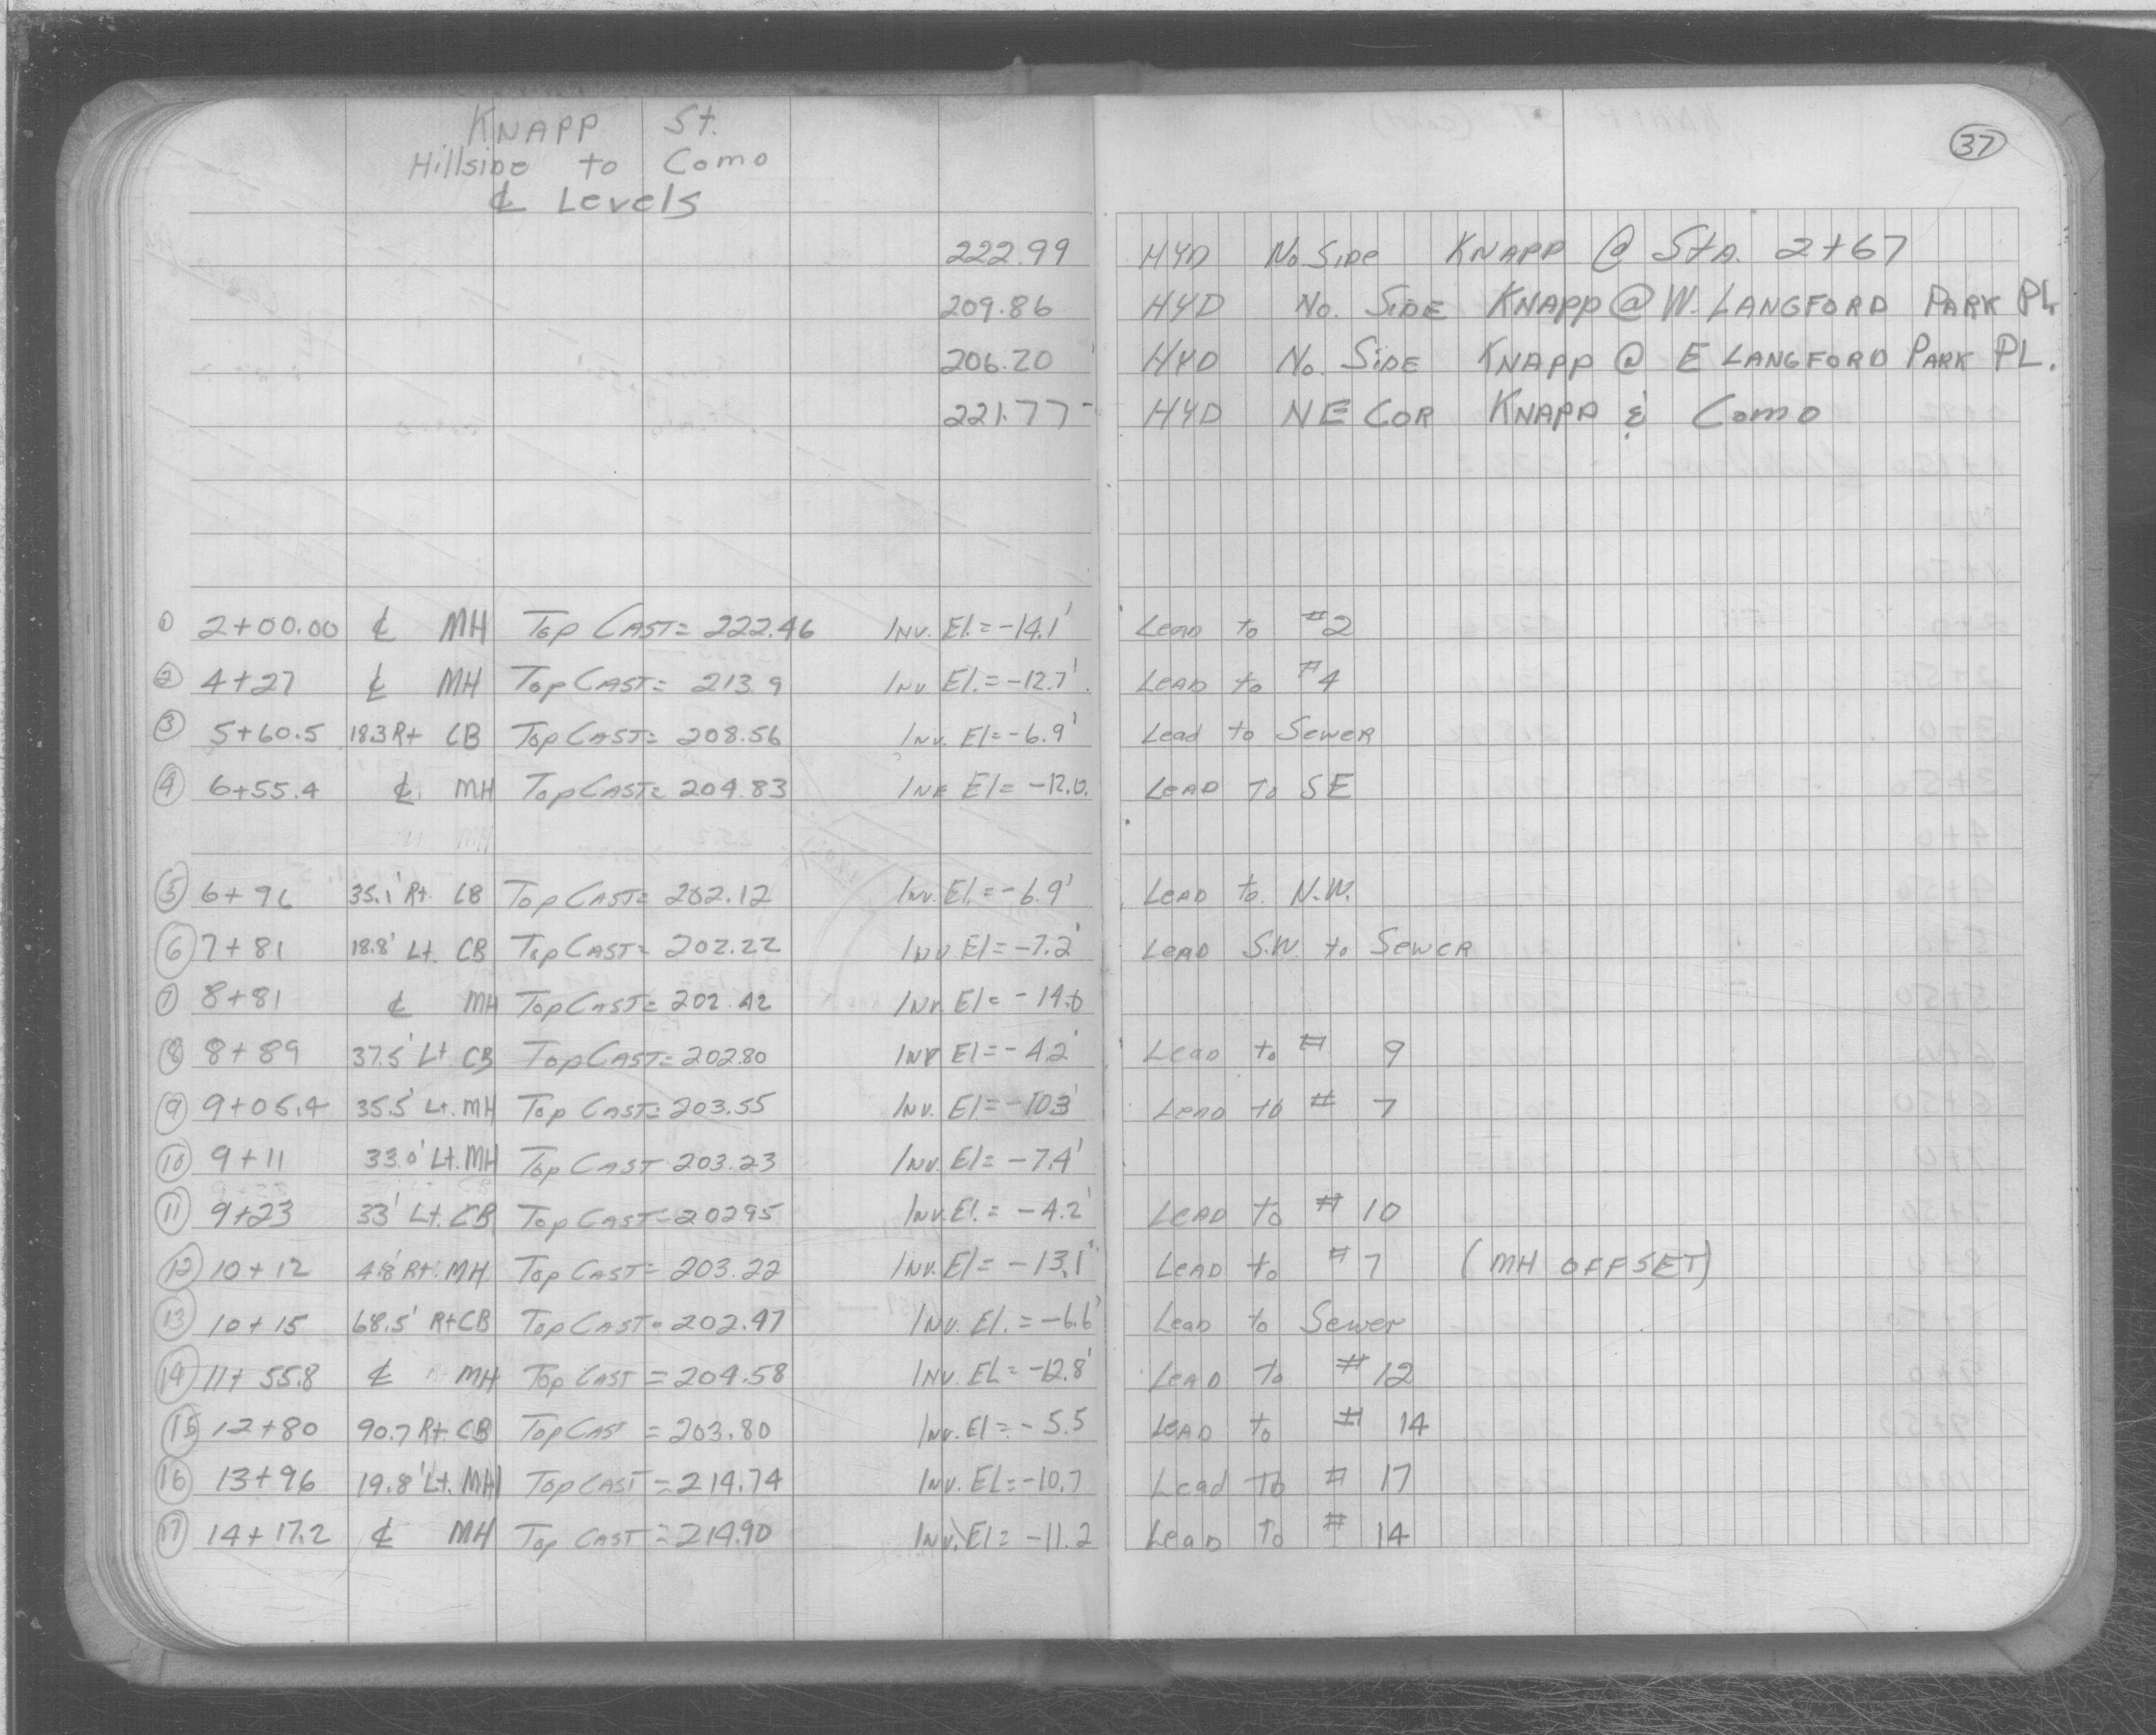 KNAPP St.
Hillside to Como
℄ Levels
37
222.99 HYD No. Side KNAPP @ Sta. 2+67
209.86 HYD No. Side KNAPP @ W. LANGFORD PARK PL.
206.20 HYD No. Side KNAPP @ E LANGFORD PARK PL.
221.77 HYD NE COR KNAPP & Como
① 2+00.00 ℄ MH Top Cast= 222.46 Inv. El.= -14.1' Lead to #2
② 4+27 ℄ MH Top Cast= 213.9 Inv El.= -12.7' Lead to #4
③ 5+60.5 18.3 Rt CB Top Cast= 208.56 Inv. El= -6.9' Lead to Sewer
④ 6+55.4 ℄ MH Top Cast= 204.83 Inv El= -12.0. Lead To SE
⑤ 6+96 35.1' Rt. CB Top Cast= 202.12 Inv. El.= -6.9' Lead to N.W.
⑥ 7+81 18.8' Lt. CB Top Cast= 202.22 Inv El= -7.2' Lead S.W. to Sewer
⑦ 8+81 ℄ MH Top Cast= 202.42 Inv. El= -14.0
⑧ 8+89 37.5' Lt CB Top Cast= 202.80 Inv El= -4.2' Lead to # 9
⑨ 9+05.4 35.5' Lt. MH Top Cast= 203.55 Inv. El= -10.3' Lead to # 7
⑩ 9+11 33.0' Lt. MH Top Cast 203.23 Inv. El= -7.4'
⑪ 9+23 33' Lt. CB Top Cast= 202.95 Inv. El.= -4.2' Lead to # 10
⑫ 10+12 4.8' Rt. MH Top Cast= 203.22 Inv. El= -13.1' Lead to #7 (MH OFFSET)
⑬ 10+15 68.5' Rt CB Top Cast= 202.97 Inv. El.= -6.6' Lead to Sewer
⑭ 11+55.8 ℄ MH Top Cast = 204.58 Inv. El= -12.8' Lead To #12
⑮ 12+80 90.7 Rt CB Top Cast = 203.80 Inv. El= -5.5 Lead to # 14
⑯ 13+96 19.8' Lt. MH Top Cast = 214.74 Inv. El= -10.7 Lead To # 17
⑰ 14+17.2 ℄ MH Top Cast = 214.90 Inv. El= -11.2 Lead To # 14